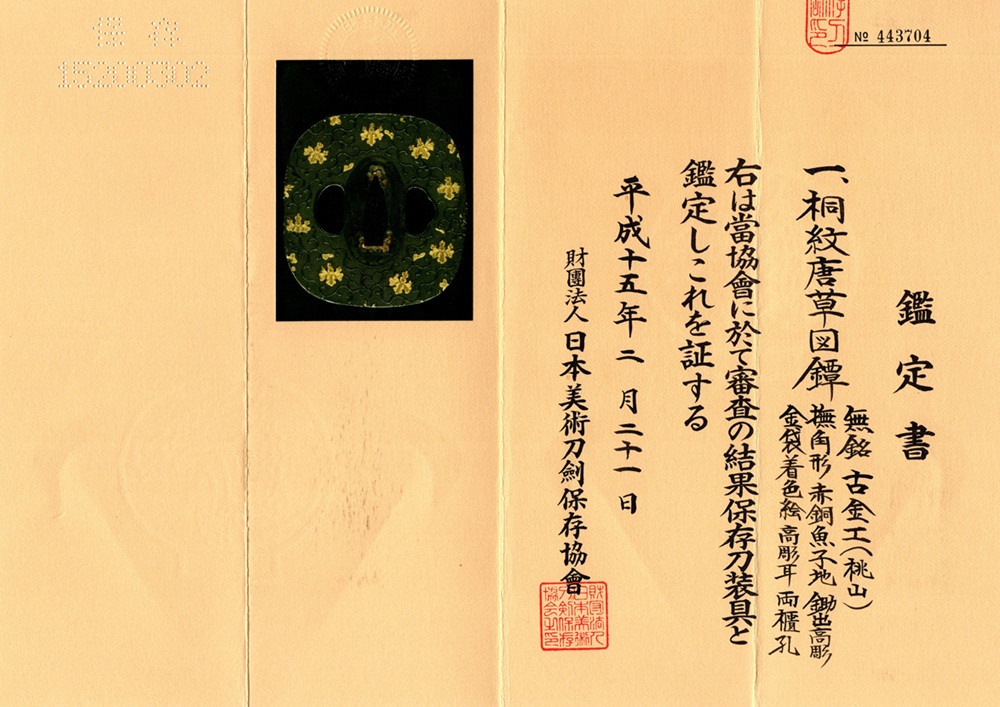 鑑定書
一、桐紋唐草図鐔
無銘 古金工(桃山)
撫角形 赤銅魚子地 鋤出高彫
金袋着色絵 高彫耳 両櫃孔
右は當協會に於て審査の結果保存刀装具と
鑑定しこれを証する
平成十五年二月二十一日
財團法人 日本美術刀劍保存協會
№ 443704
保存
15200302